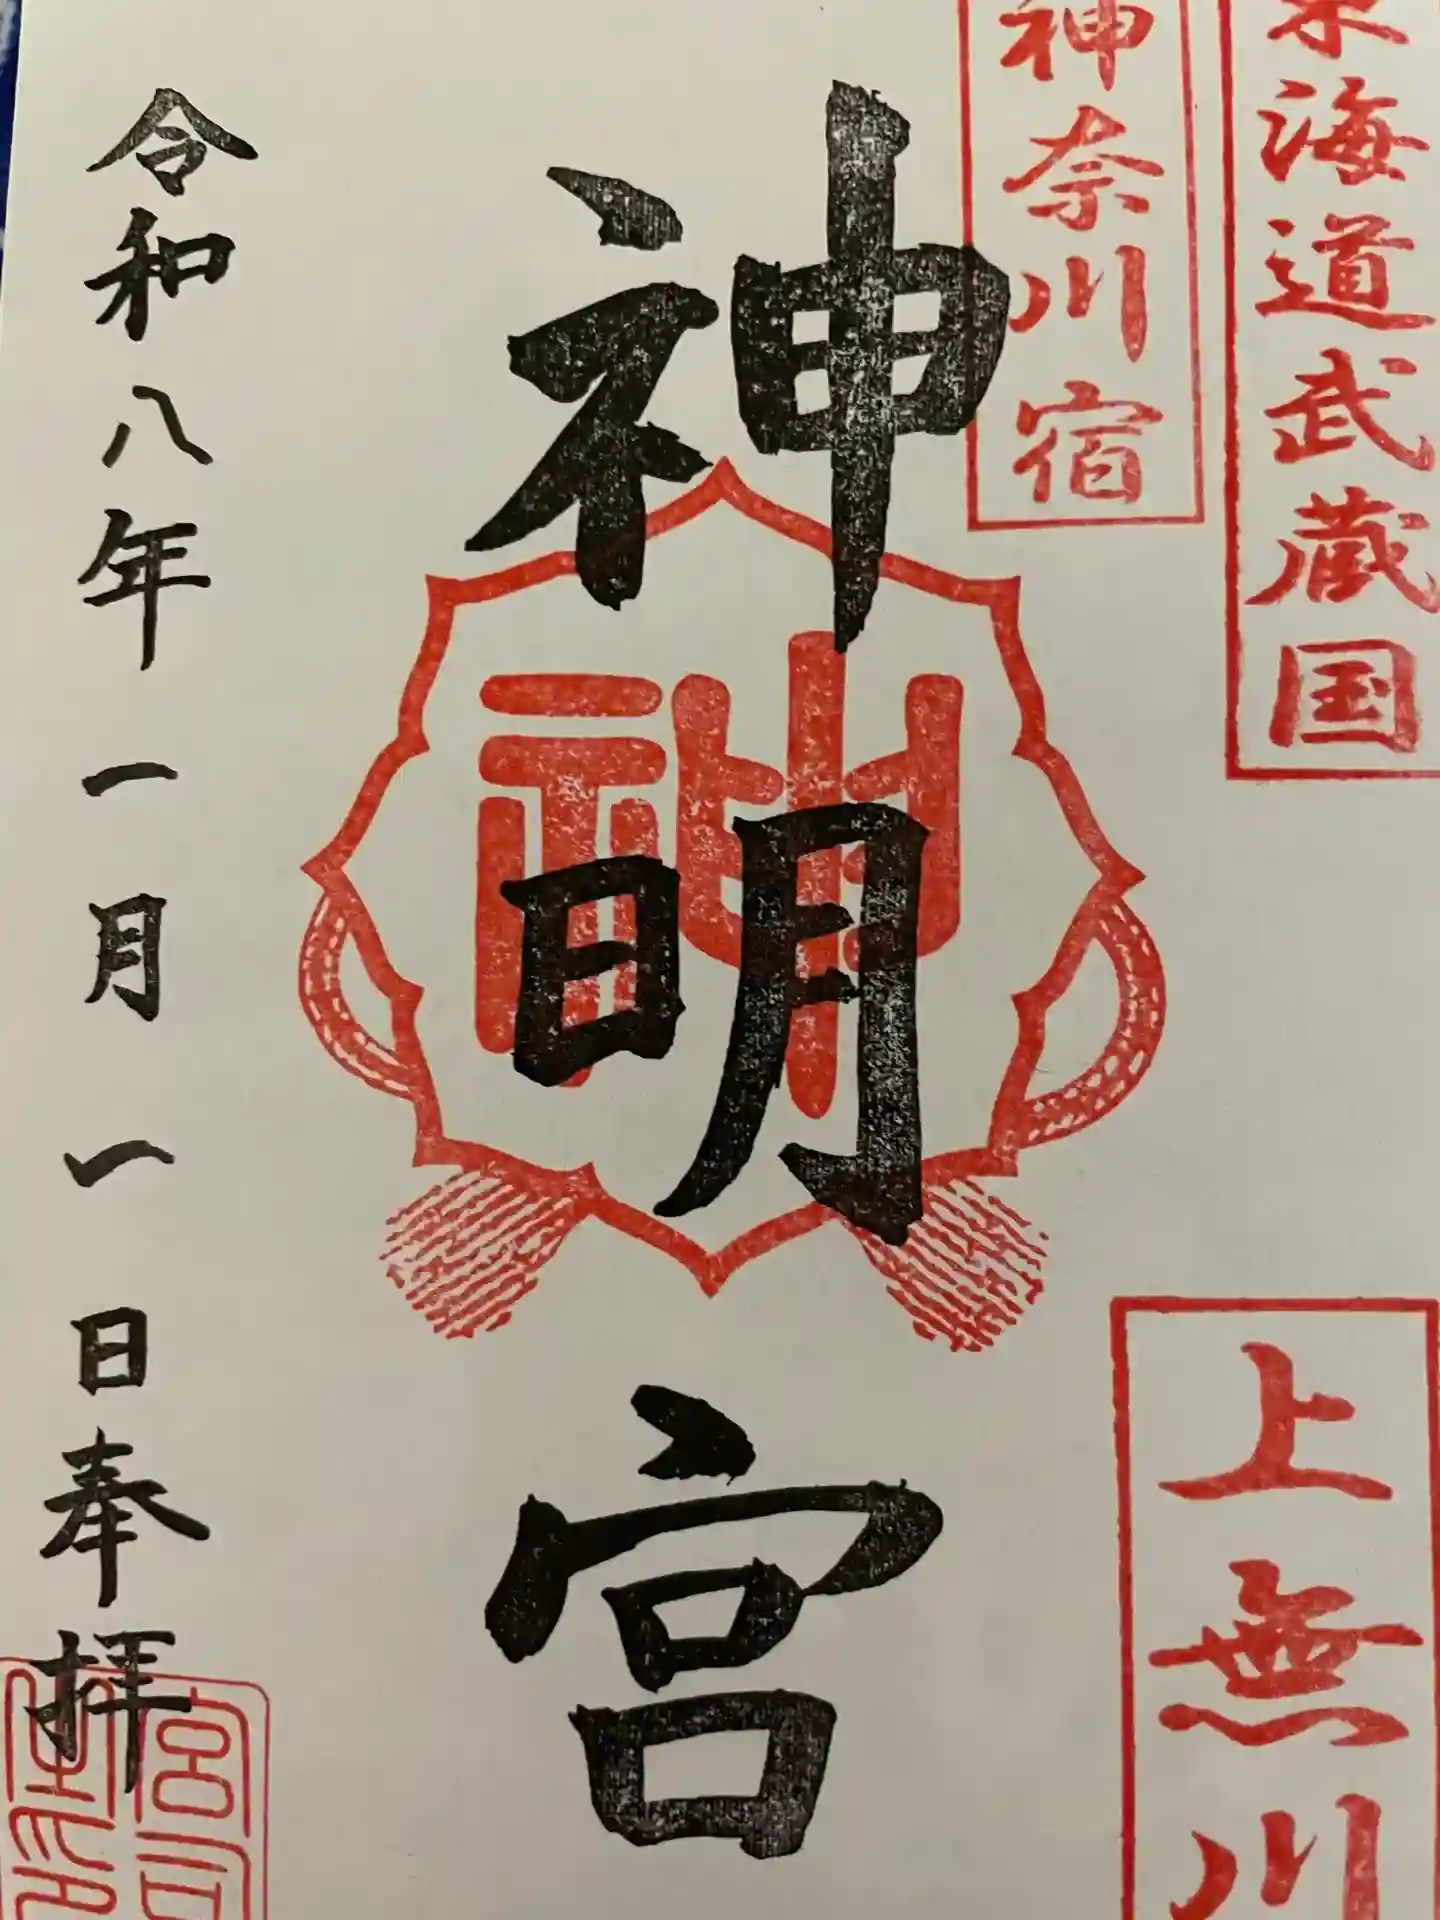 東海道武蔵国
神奈川宿
上無川
神明宮
神
令和八年一月一日奉拝
宮司